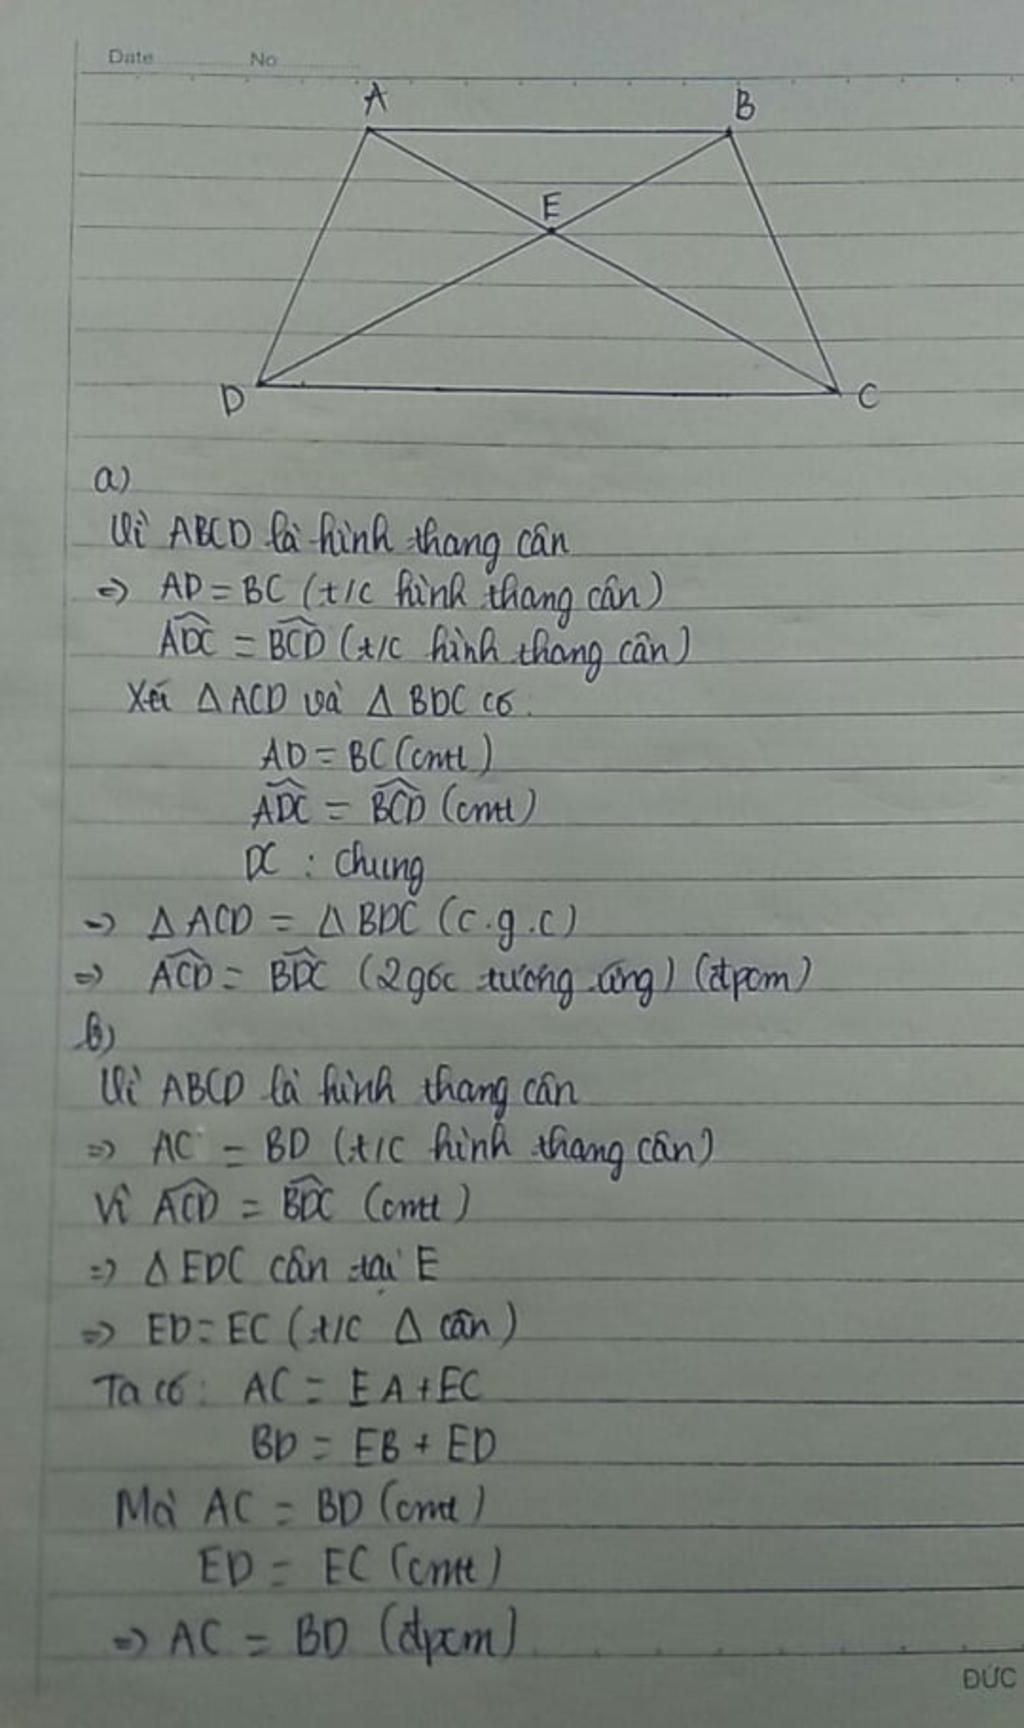 Date No
A
B
E
D
C
a)
Vì ABCD là hình thang cân
=> AD = BC (t/c hình thang cân)
ADC = BCD (t/c hình thang cân)
Xét Δ ACD và Δ BDC có
AD = BC (cmt)
ADC = BCD (cmt)
DC : chung
=> Δ ACD = Δ BDC (c.g.c)
=> ACD = BDC (2 góc tương ứng) (đpcm)
b)
Vì ABCD là hình thang cân
=> AC = BD (t/c hình thang cân)
Vì ACD = BDC (cmt)
=> Δ EDC cân tại E
=> ED = EC (t/c Δ cân)
Ta có: AC = EA + EC
BD = EB + ED
Mà AC = BD (cmt)
ED = EC (cmt)
=> AC = BD (đpcm)
ĐỨC